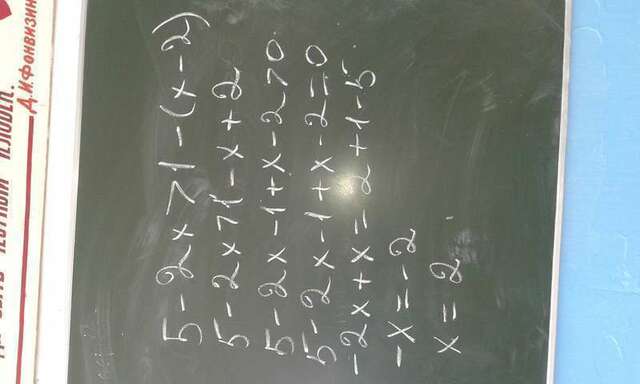 БЫТЬ ЧЕСТНЫЙ ЧЕЛОВЕК.
Д.И.Фонвизин
5 - 2x > 1 - (x - 2)
5 - 2x > 1 - x + 2
5 - 2x - 1 + x - 2 > 0
5 - 2x - 1 + x - 2 = 0
-2x + x = 2 + 1 - 5
-x = -2
x = 2